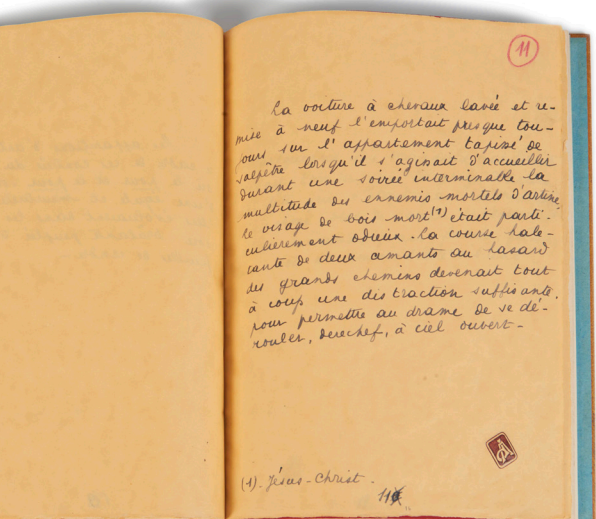 11
La voiture à chevaux lavée et re-
mise à neuf l'emportait presque tou-
jours sur l'appartement tapissé de
salpêtre lorsqu'il s'agissait d'accueillir
durant une soirée interminable la
multitude des ennemis mortels d'artine,
le visage de bois mort (1) était parti-
culièrement odieux. La course hale-
tante de deux amants au hasard
des grands chemins devenait tout
à coup une distraction suffisante
pour permettre au drame de se dé-
rouler, derechef, à ciel ouvert.
(1). Jésus-Christ.
11